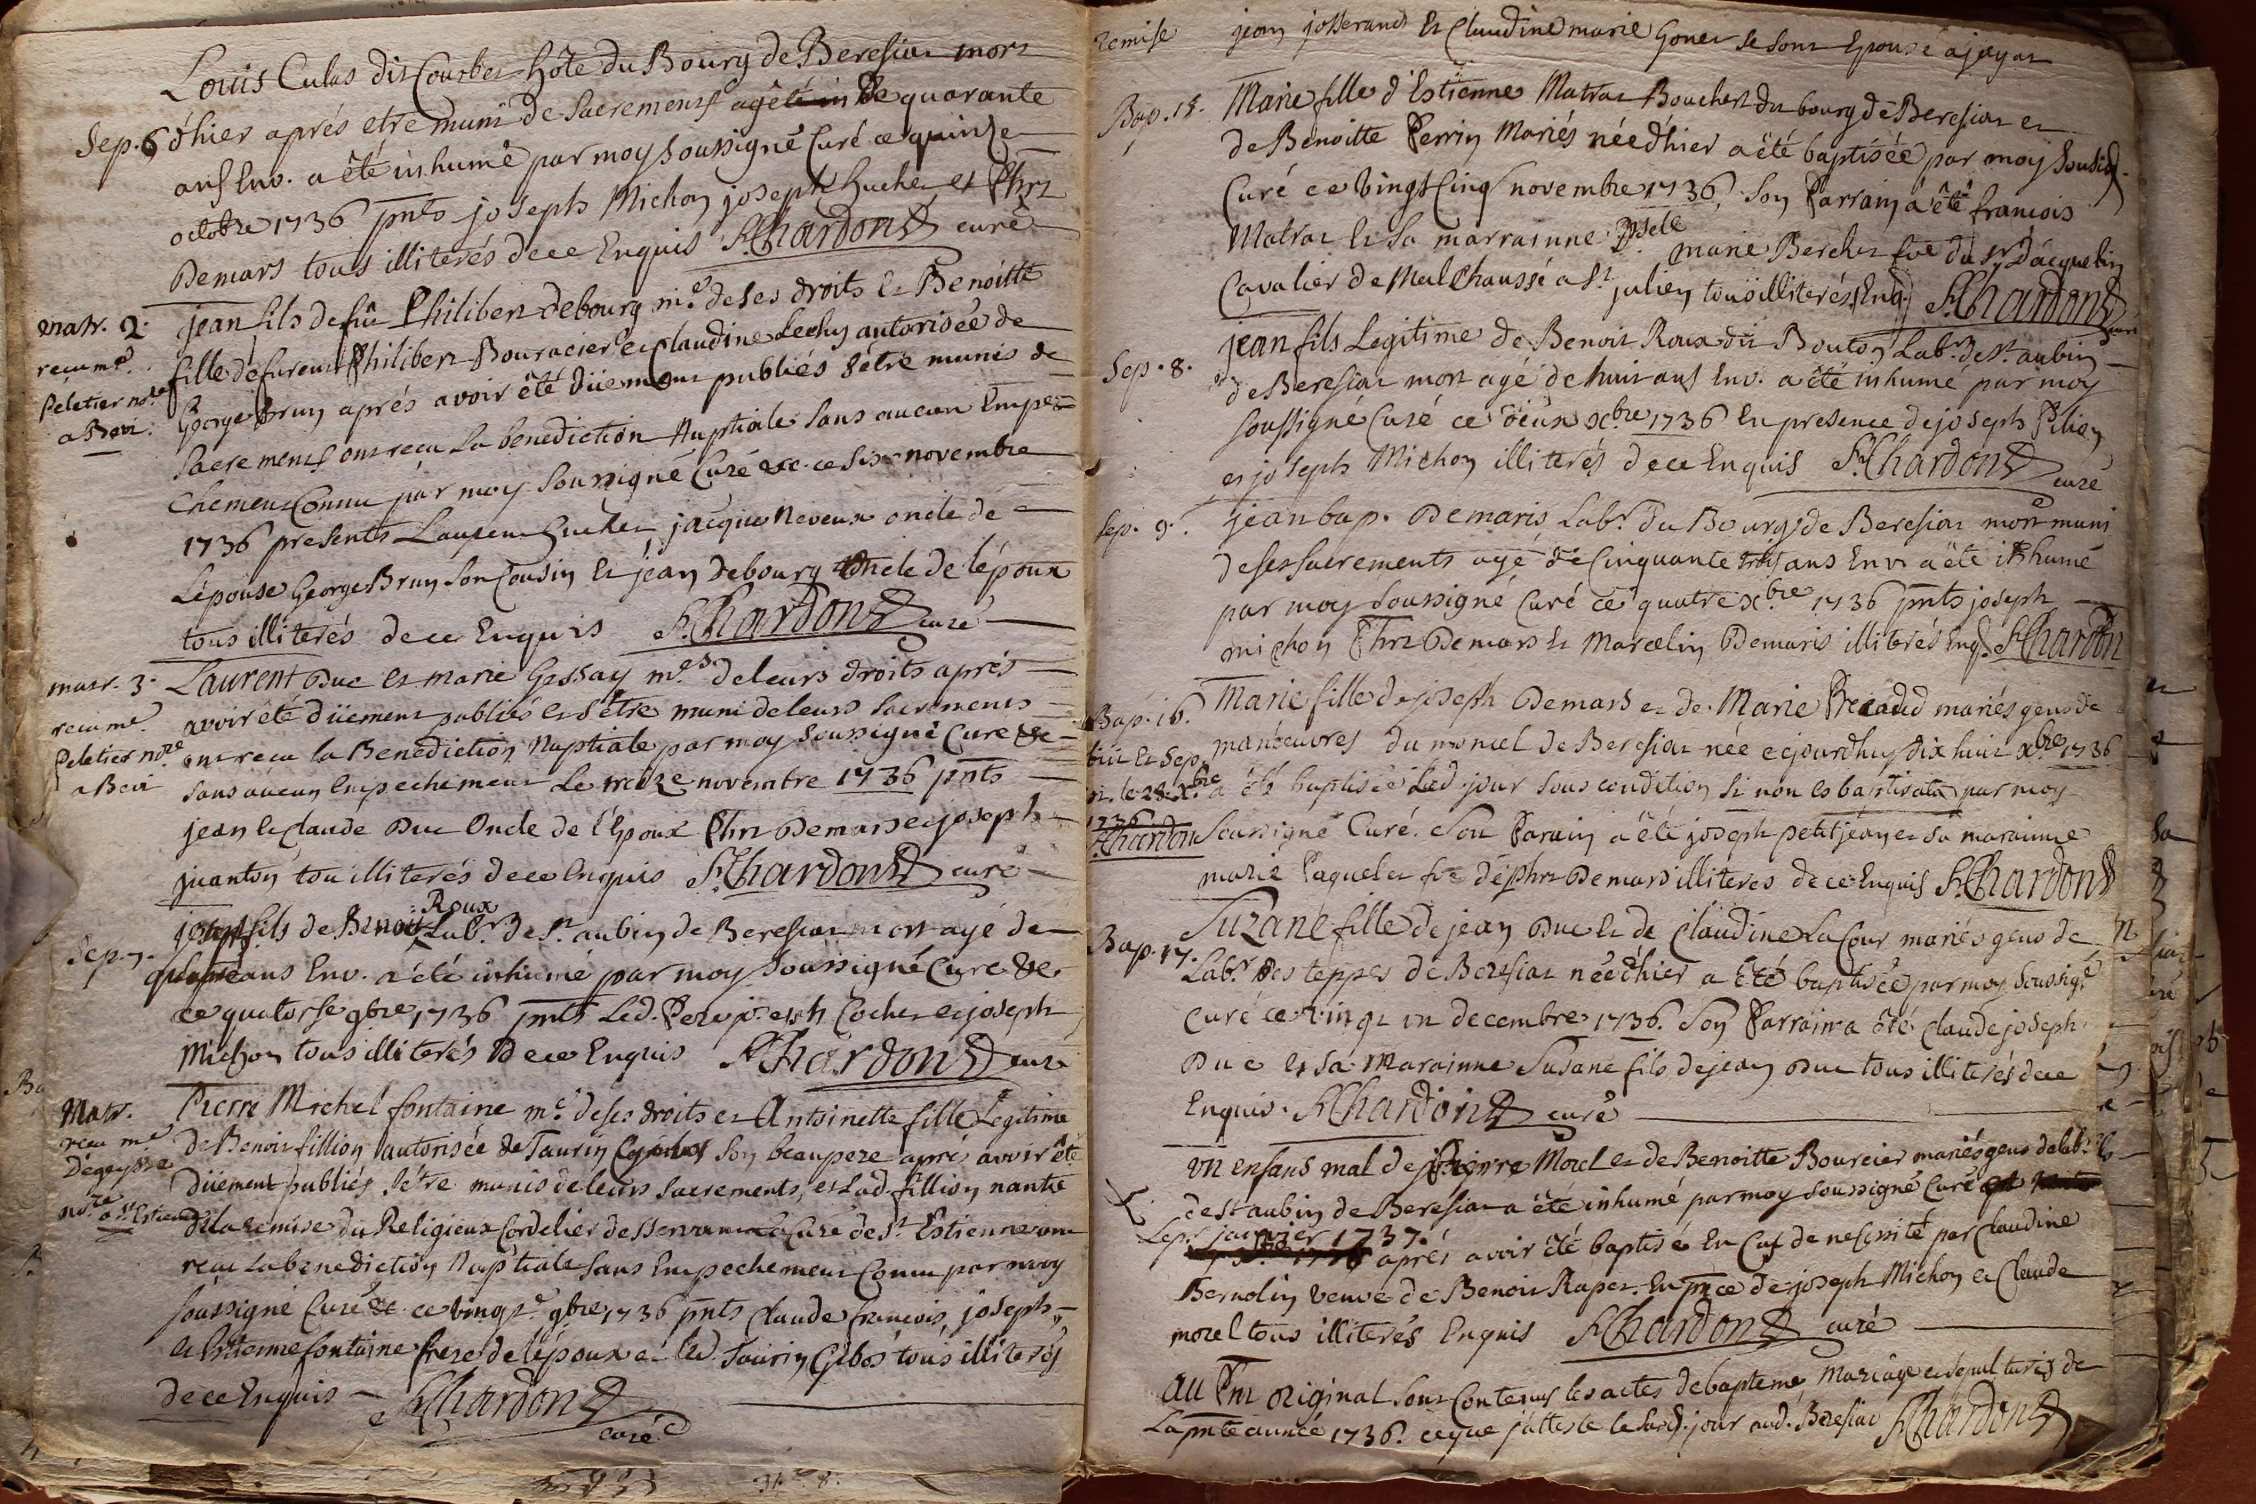 Louis Culas dit Courbet hôte du Bourg de Beresiat mort
Sep. 6 d'hier aprés etre muni de Sacrements agé de quarante
ans Env. a êté inhumé par moy Soussigné Curé ce quinze
octobre 1736 pnts joseph Michon joseph huchet et Phrt
Demars tous illiterés de ce Enquis F. Chardon curé
matr. 2. jean fils de fû Philibert Debourg me. de ses droits Et Benoitte
recu me. fille de fû Philibert Bouracier et Claudine autorisée de
Peletier nore. George Brun aprés avoir êté düement publiés s'être munis de
a Bevi. Sacrements ont recu La benediction Nuptiale Sans aucun Empe=
chement Connu par moy Soussigné Curé &c. ce Six novembre
1736 presents Laurent huchet jacque Neveux oncle de
L'épouse George Brun Son Cousin Et jean Debourg oncle de l'époux
tous illiterés de ce Enquis F. Chardon curé
matr. 3. Laurent Duc et marie Gessay mes. de leurs droits aprés
recu me. avoir êté düement publiés et s'être muni de leurs Sacrements
Peletier nore. ont recu la Benediction Nuptiale par moy Soussigné Curé &c
a Bevi Sans aucun Empechement Le treize novembre 1736 pnts
jean Et Claude Duc Oncle de l'Epoux Phrt Demars et joseph
juanton tou illiterés de ce Enquis F. Chardon curé
: Roux
Sep. 7. joseph fils de Benoit Labr. de St. aubin de Beresiat mort agé de
ans Env. a êté inhumé par moy Soussigné Curé &c
ce quatorse 9bre 1736 pnts Led. Pere joseph Cochet et joseph
Michon tous illiterés De ce Enquis F. Chardon curé
Matr. Pierre Michel fontaine me. de ses droits et Antoinette fille Legitime
recu me de Benoit fillion autorisée de Taurin Son beaupere apré avoir êté
düement publiés s'être munis de leurs Sacrements, et Lad. fillion nantie
nore a St. Estienne de la remise du Religieux Cordelier desservant la Cure de St. Estienne ont
recu La benediction Nuptiale Sans Empechement Connu par moy
Soussigné Curé &c ce vingt 9bre 1736 pnts Claude francois, joseph
et Estienne fontaine frere de l'époux et led. Taurin Gibos tous illiterés
de ce Enquis F. Chardon
curé
remise jean josserand Et Claudine marie Gonet Se sont Epousé a jayat
Bap. 15. Marie fille d'Estienne Matrat Boucher du bourg de Beresiat et
de Benoitte Perrin Mariés née d'hier a êté baptisée par moy Sousig.
Curé ce Vingt Cinq novembre 1736. Son Parrain a êté francois
Matrat Et Sa marrainne Dselle marie Berchet fee du Sr. Dacquelin
Cavalier de Malchaussé a St. julien tous illiterés Enq. F. Chardon
curé
Sep. 8. jean fils Legitime de Benoit Roux dit Bouton Labr. de St. aubin
de Beresiat mort agé de huit ans Env. a êté inhumé par moy
Soussigné Curé ce deux xbre 1736 En presence de joseph Pilion
et joseph Michon illiterés de ce Enquis F. Chardon curé
Sep. 9. jean bap. Demaris Labr. du Bourg de Beresiat mort muni
de ses sacrements agé de Cinquante trois ans Env. a êté inhumé
par moy Soussigné Curé ce quatre xbre 1736 pnts joseph
michon Phrt Demars Et Marcelin Demaris illiterés Enq. F. Chardon
Bap. 16. Marie fille de joseph Demars et de Marie mariés gens de
et Sep. manoeuvres du moncel de Beresiat née ce jourdhuy dix huit xbre 1736
le 28. xbre a êté baptisée Led. jour Sous condition Si non es baptisata par moy
1736 F. Chardon Soussigné Curé. Son Parain a êté joseph petitjean et Sa marainne
marie Paquelet fee de Phrt Demars illiteres de ce Enquis F. Chardon
Bap. 17. Suzane fille de jean Duc Et de Claudine La Cour mariés gens de
Labr. des teppes de Beresiat née d'hier a êté baptisée par moy Soussigé
Curé ce vingt un decembre 1736. Son Parrain a êté Claude joseph
Duc et Sa Marainne Susane fils de jean Duc tous illiterés de ce
Enquis. F. Chardon curé
un enfans mal de Pierre Morel et de Benoitte Bourcier mariés gens de labr.
de St aubin de Beresiat a êté inhumé par moy Soussigné Curé
Le pr. janvier 1737. aprés avoir êté baptisé En Cas de nesessité par Claudine
Bernolin veuve de Benoit Rapet. En pnce de joseph Michon et Claude
morel tous illiterés Enquis F. Chardon curé
Au Pnt original sont Contenus les actes de bapteme, Mariage et sepultures de
La pnte année 1736. ce que j'atteste le susd. jour aud. Beresiat F. Chardon